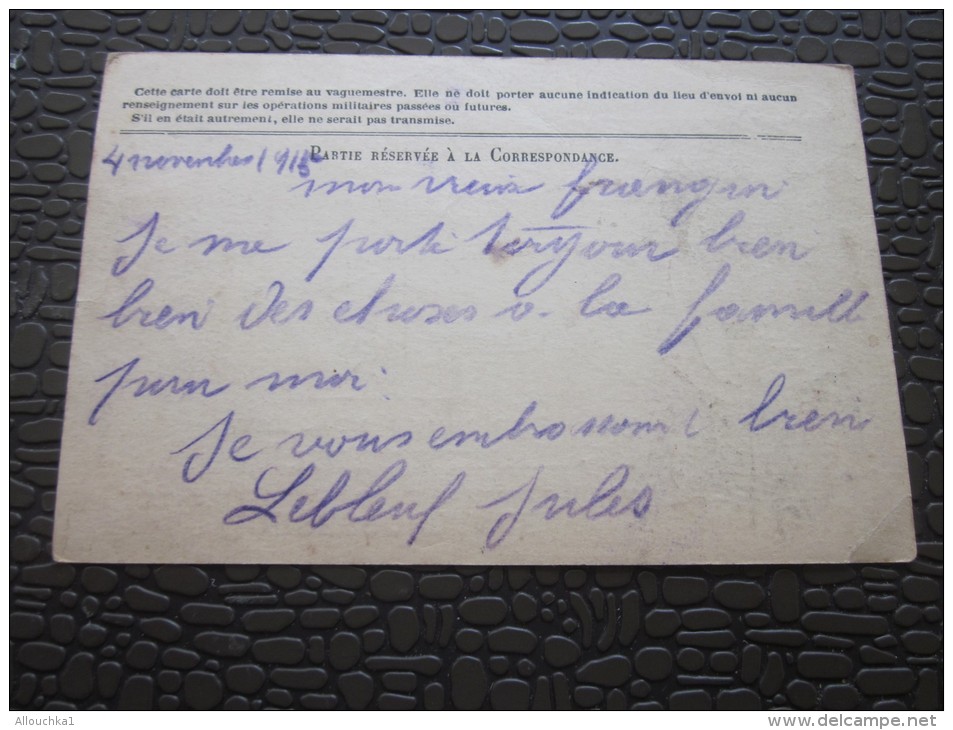 Cette carte doit être remise au vaguemestre. Elle ne doit porter aucune indication du lieu d'envoi ni aucun
renseignement sur les opérations militaires passées ou futures.
S'il en était autrement, elle ne serait pas transmise.
PARTIE RÉSERVÉE À LA CORRESPONDANCE.
4 novembre
mon vieux frangin
Je me porte toujour bien
bien des choses a la famille
pour moi
Je vous embrassant bien
Lebleuf Jules
Allouchka1
www.delcampe.net